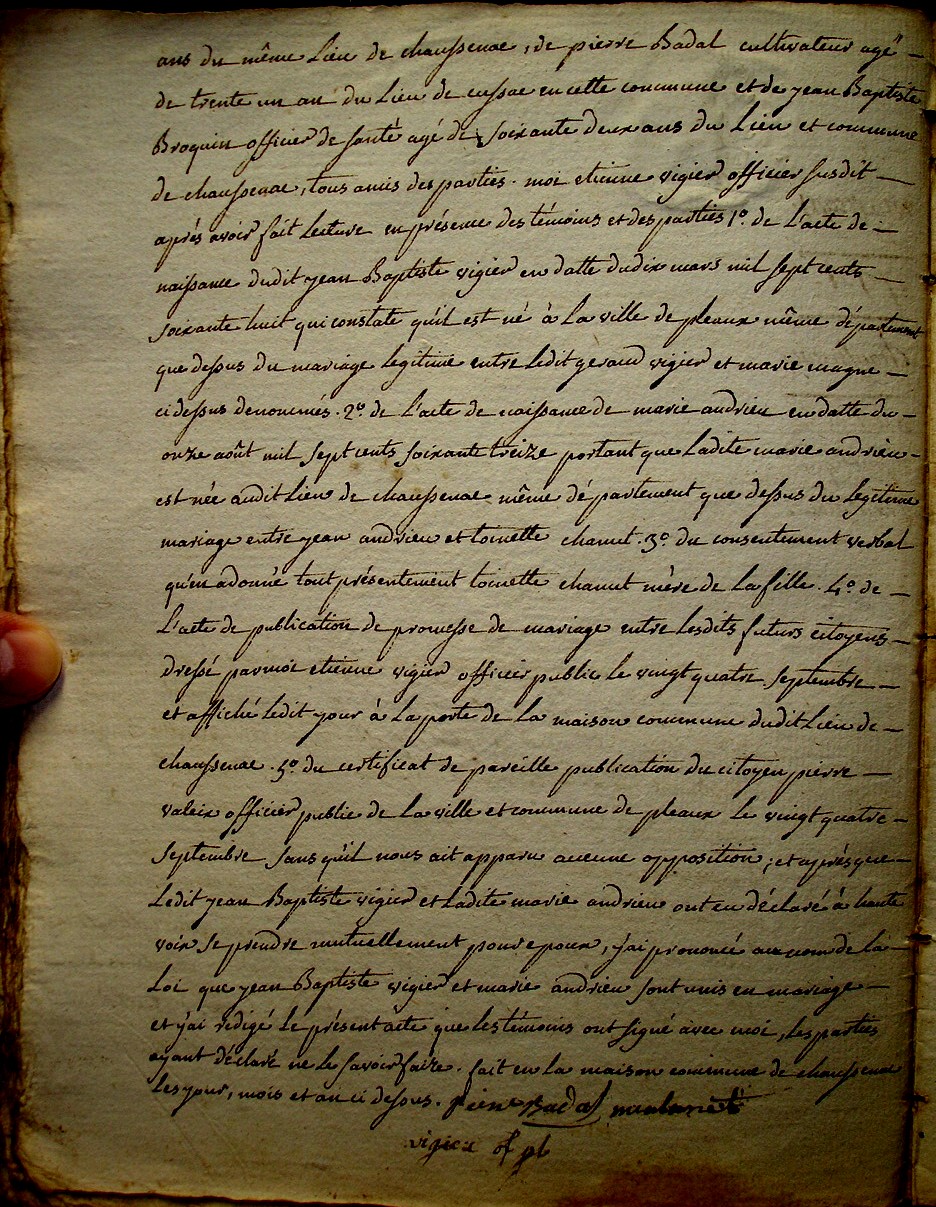 ans du même Lieu de chaussenac, de pierre Badal cultivateur agé
de trente un an du Lieu de cussac en cette commune et de jean Baptiste
Broquin officier de santé agé de soixante deux ans du Lieu et commune
de chaussenac, tous amis des parties. moi etienne vigier officier susdit
aprés avoir fait Lecture en présence des témoins et des parties 1º. de L'acte de
naissance dudit jean Baptiste vigier en datte du dix mars mil sept cents
soixante huit qui constate qu'il est né à La ville de pleaux même département
que dessus du mariage Legitime entre Ledit geraud vigier et marie magne
ci dessus denommés. 2º. de L'acte de naissance de marie andrieu en datte du
onze août mil sept cents soixante treize portant que Ladite marie andrieu
est née audit Lieu de chaussenac même département que dessus du Legitime
mariage entre jean andrieu et toinette chanut. 3º. du consentement verbal
qu'en a donné tout présentement toinette chanut mère de La fille. 4º. de
L'acte de publication de promesse de mariage entre Lesdits futurs citoyens
dressé par moi etienne vigier officier public Le vingt quatre septembre
et affiché Ledit jour à La porte de La maison commune dudit Lieu de
chaussenac. 5º. du certificat de pareille publication du citoyen pierre
valeix officier public de La ville et commune de pleaux Le vingt quatre
septembre sans qu'il nous ait apparu aucune opposition; et aprés que
Ledit jean Baptiste vigier et Ladite marie andrieu ont eu déclaré à haute
voix se prendre mutuellement pour epoux, j'ai prononcé au nom de La
Loi que jean Baptiste vigier et marie andrieu sont unis en mariage
et j'ai redigé Le présent acte que Les témoins ont signé avec moi, Les parties
ayant déclaré ne Le savoir faire. fait en La maison commune de chaussenac
Les jour, mois et an ci dessus. pierre Badal
vigier of pb